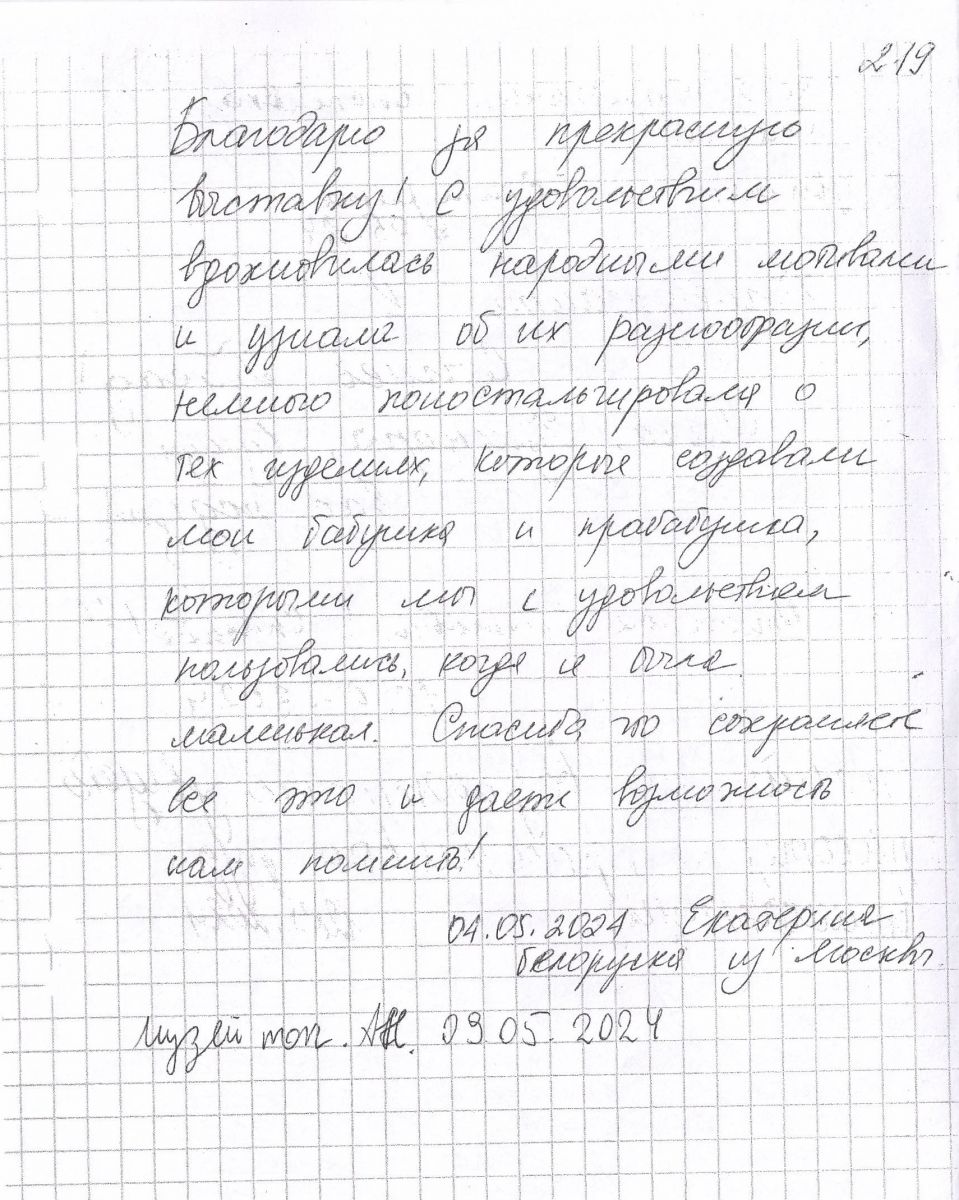 219
Благодарю за прекрасную
выставку! С удовольствием
вдохновилась народными мотивами
и узнала об их разнообразии,
немного поностальгировала о
тех изделиях, которые создавали
мои бабушка и прабабушка,
которыми мы с удовольствием
пользовались, когда я была
маленькая. Спасибо, что сохраняете
все это и даете возможность
нам помнить!
04.05.2024 Екатерина
белоруска из Москвы.
Музей топ. 09 05. 2024